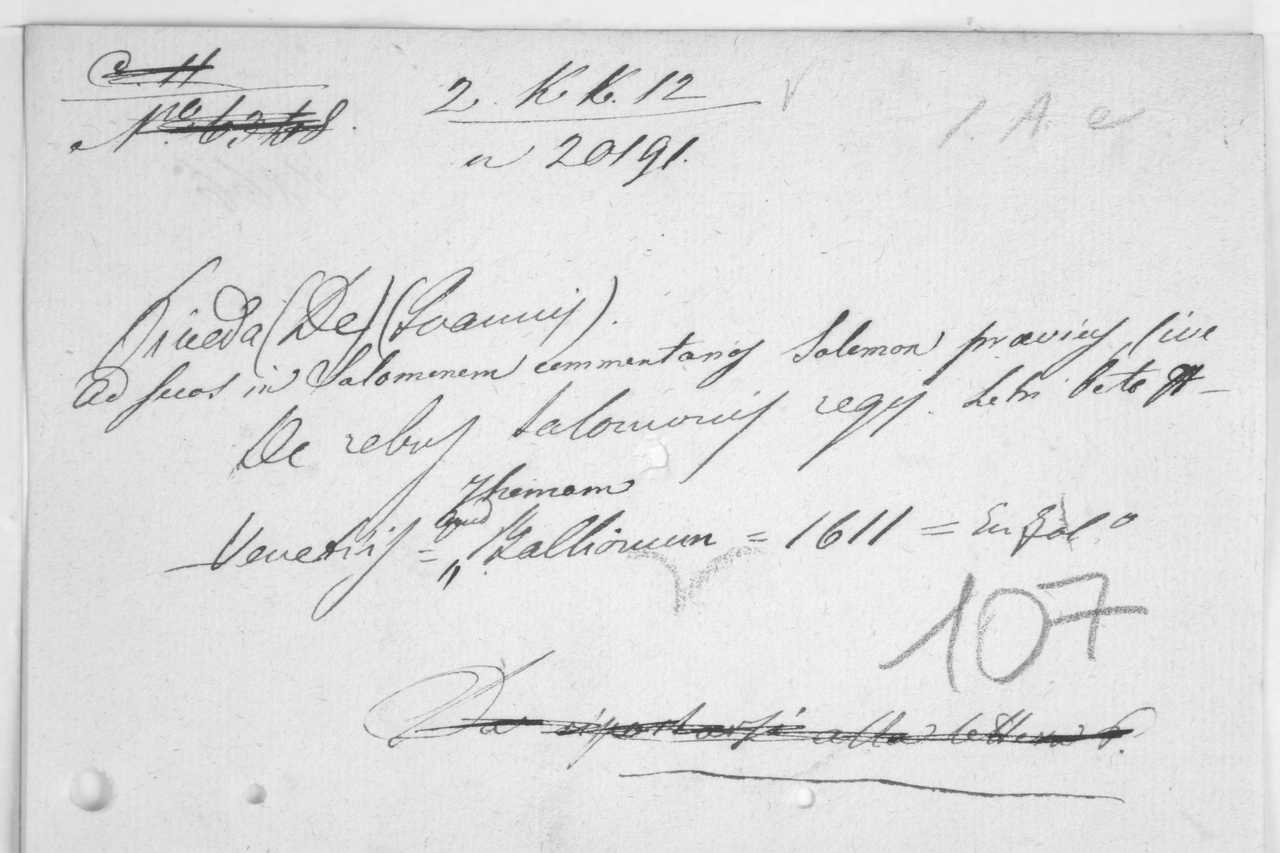 C. 11
N.ro 6368.
2. K K. 12
n 20191.
1. A. e
Pineda (De) (Ioannis).
Ad suos in Salomonem commentarios Salomon prævius, sive
De rebus Salomonis regis. Libri Octo
Thomam
Venetiis = apud Ballionum = 1611 = In fol.o
107
Da riportarsi alla lettera P.